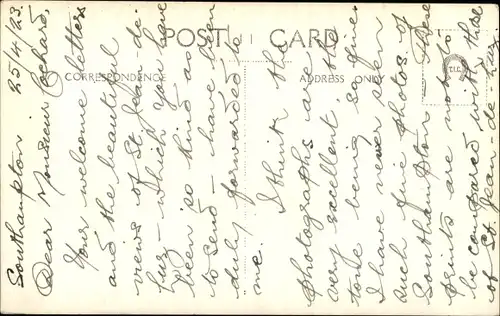 POST CARD
CORRESPONDENCE
ADDRESS ONLY
Southampton. 25/4/23.
Dear Monsieur Cochard,
Your welcome letters
and the beautiful
views of St. Jean-de-
Luz – which you have
been so kind as
to send – have been
duly forwarded to
me.
I think the
photographs are
very excellent, the
tone being so fine.
I have never seen
such fine photos of
Southampton. These
prints are not to
be compared with those
of St. Jean-de-Luz.